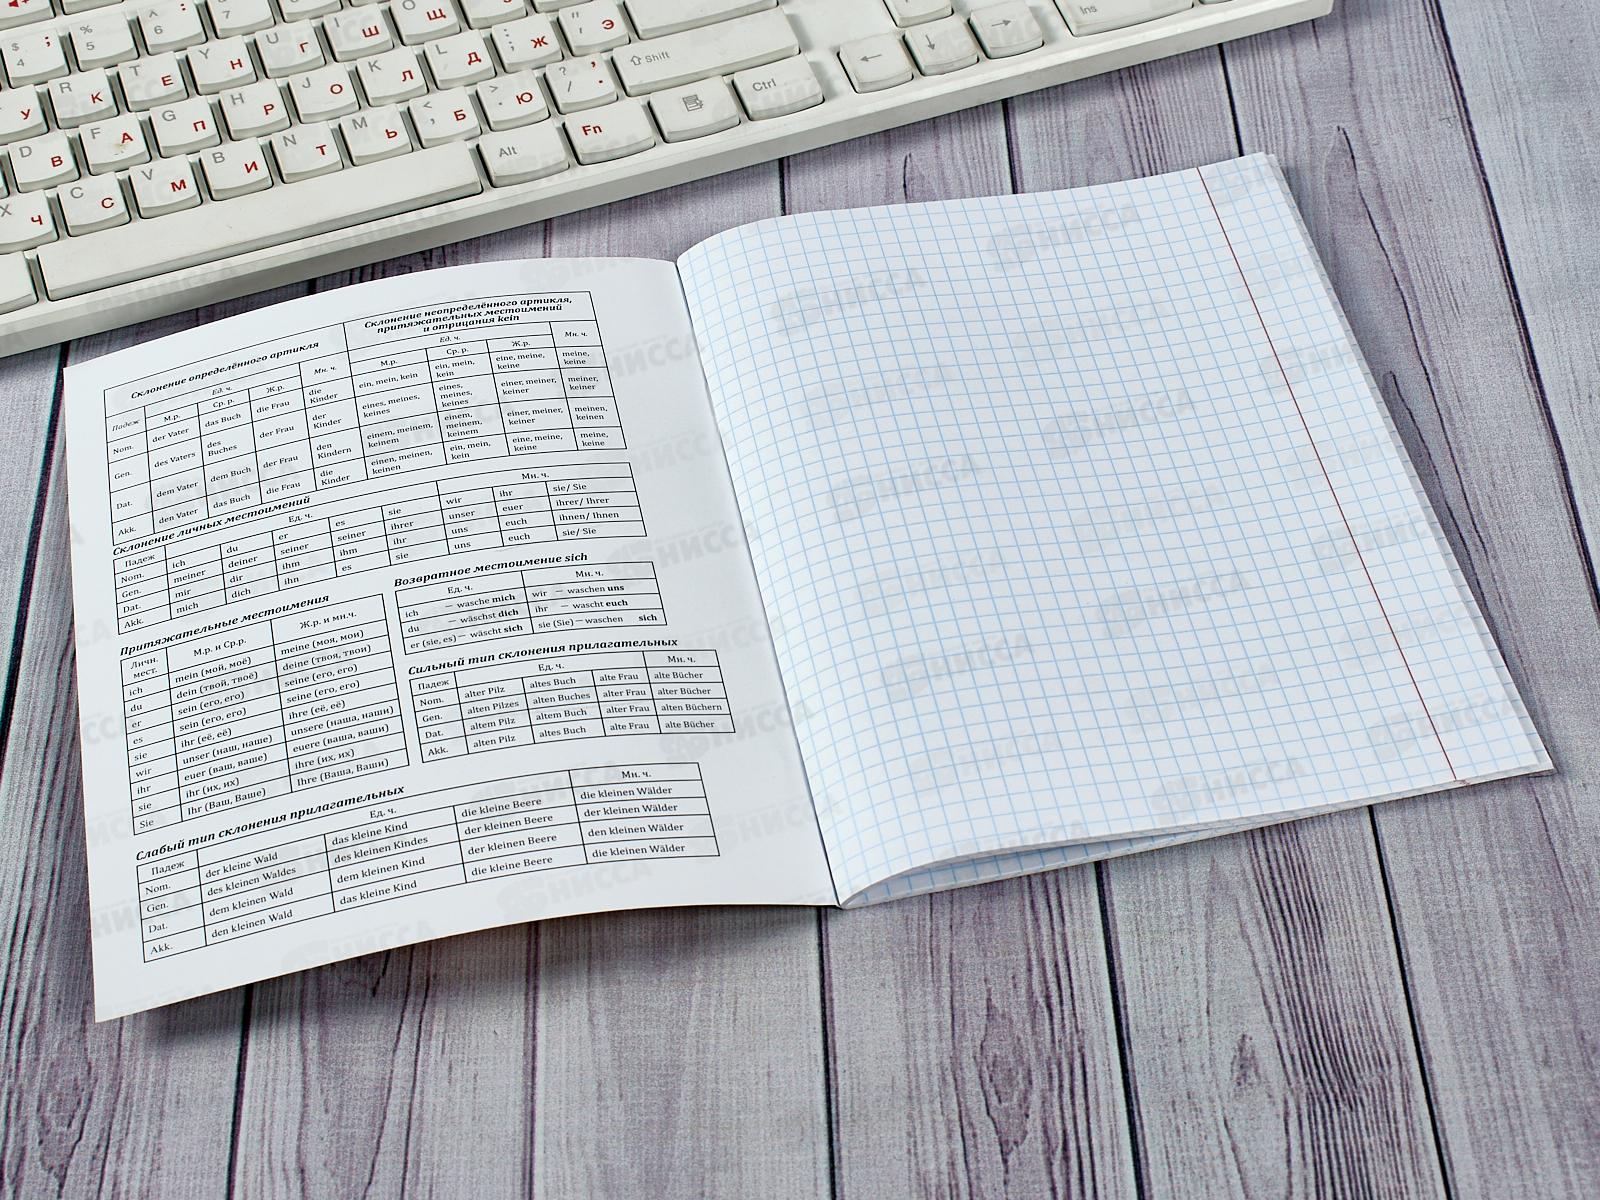 Склонение определённого артикля
Склонение неопределённого артикля,
притяжательных местоимений
и отрицания kein
Падеж Ед. ч. Мн. ч. Ед. ч. Мн. ч.
М.р. Ср. р. Ж.р. М.р. Ср. р. Ж.р.
Nom. der Vater das Buch die Frau die Kinder ein, mein, kein ein, mein, kein eine, meine, keine meine, keine
Gen. des Vaters des Buches der Frau der Kinder eines, meines, keines eines, meines, keines einer, meiner, keiner meiner, keiner
Dat. dem Vater dem Buch der Frau den Kindern einem, meinem, keinem einem, meinem, keinem einer, meiner, keiner meinen, keinen
Akk. den Vater das Buch die Frau die Kinder einen, meinen, keinen ein, mein, kein eine, meine, keine meine, keine
Склонение личных местоимений
Падеж Ед. ч. Мн. ч.
Nom. ich du er es sie wir ihr sie/ Sie
Gen. meiner deiner seiner seiner ihrer unser euer ihrer/ Ihrer
Dat. mir dir ihm ihm ihr uns euch ihnen/ Ihnen
Akk. mich dich ihn es sie uns euch sie/ Sie
Притяжательные местоимения
Личн. мест. М.р. и Ср.р. Ж.р. и мн.ч.
ich mein (мой, моё) meine (моя, мои)
du dein (твой, твоё) deine (твоя, твои)
er sein (его, его) seine (его, его)
es sein (его, его) seine (его, его)
sie ihr (её, её) ihre (её, её)
wir unser (наш, наше) unsere (наша, наши)
ihr euer (ваш, ваше) euere (ваша, ваши)
sie ihr (их, их) ihre (их, их)
Sie Ihr (Ваш, Ваше) Ihre (Ваша, Ваши)
Возвратное местоимение sich
Ед. ч. Мн. ч.
ich — wasche mich wir — waschen uns
du — wäschst dich ihr — wascht euch
er (sie, es) — wäscht sich sie (Sie) — waschen sich
Сильный тип склонения прилагательных
Падеж Ед. ч. Мн. ч.
Nom. alter Pilz altes Buch alte Frau alte Bücher
Gen. alten Pilzes alten Buches alter Frau alter Bücher
Dat. altem Pilz altem Buch alter Frau alten Büchern
Akk. alten Pilz altes Buch alte Frau alte Bücher
Слабый тип склонения прилагательных
Падеж Ед. ч. Мн. ч.
Nom. der kleine Wald das kleine Kind die kleine Beere die kleinen Wälder
Gen. des kleinen Waldes des kleinen Kindes der kleinen Beere der kleinen Wälder
Dat. dem kleinen Wald dem kleinen Kind der kleinen Beere den kleinen Wälder
Akk. den kleinen Wald das kleine Kind die kleine Beere die kleinen Wälder
Shift
Ctrl
Alt
Fn
Ins
НИССА